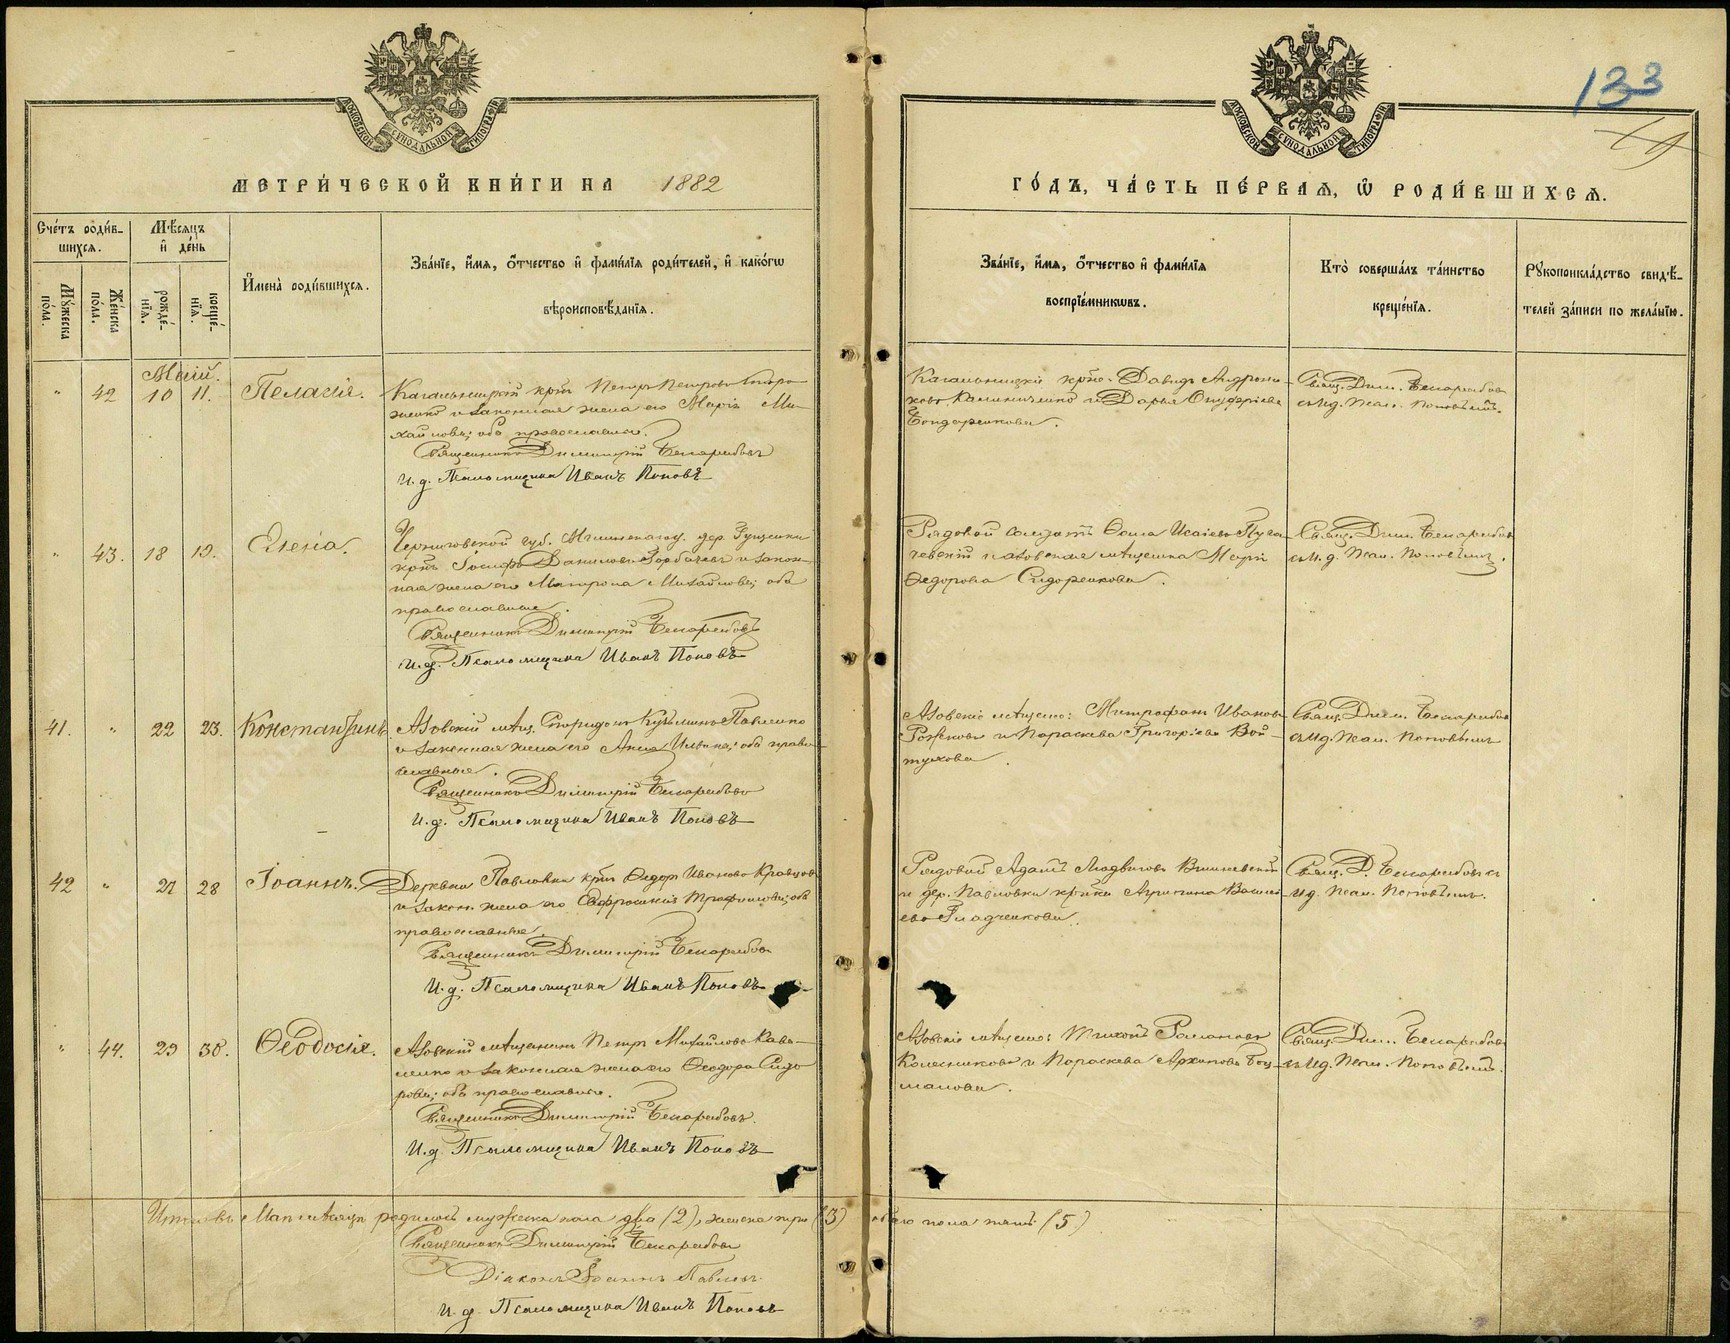 133
МОСКОВСКОЙ СѴНОДАЛЬНОЙ ТИПОГРАФІИ
МОСКОВСКОЙ СѴНОДАЛЬНОЙ ТИПОГРАФІИ
МЕТРИ́ЧЕСКОЙ КНИ́ГИ НА 1882
ГО́ДЪ, ЧА́СТЬ ПЕ́РВАЯ, Ѡ҆ РОДИ́ВШИХСЯ.
Сче́тъ роди́в-
шихся.
Мѣ́сяцъ
и҆ де́нь
Му́жеска по́ла.
Же́нска по́ла.
рожде́-нїя.
креще́-нїя.
И҆мена̀ роди́вшихся.
Зва́нїе, и҆́мя, ѻ҆́тчество и҆ фами́лїя роди́телей, и҆ како́гѡ
вѣроисповѣ́данїя.
Зва́нїе, и҆́мя, ѻ҆́тчество и҆ фами́лїя
воспрїе́мникѡвъ.
Кто̀ соверша́лъ та́инство
креще́нїя.
Рꙋкоприкла́дство свидѣ́-
телей за́писи по жела́нїю.
Май.
" 42 10 11. Пелагія.
Кагальницкій крѣн Петръ Петровъ
и законная жена его Марія Ми-
хайлова; оба православные.
Священникъ Димитрій
И. д. Псаломщика Иванъ Поповъ
Кагальницкіе крѣс. Давидъ Андрони-
ковъ Калиниченко и Дарья Онуфріева
Бондаренкова.
Свящ. Дим.
съ и. д. Псал. Поповымъ.
" 43. 18 19. Елена.
Черниговской губ. Нѣжинскаго у. дер.
крѣн Іосифъ Даниловъ Горбачевъ и закон-
ная жена его Матрона Михайлова; оба
православные.
Священникъ Димитрій
И. д. Псаломщика Иванъ Поповъ
Рядовой солдатъ Ѳома Исаіевъ Пуга-
чевскій и азовская мѣщанка Марія
Ѳедорова Сидоренкова.
Свящ. Дим.
съ и. д. Псал. Поповымъ.
41. " 22 23. Константинъ
Азовскій мѣщ. Спиридонъ Кузьминъ Павленко
и законная жена его Анна Ильина; оба право-
славные.
Священникъ Димитрій
И. д. Псаломщика Иванъ Поповъ
Азовскіе мѣщане: Митрофанъ Ивановъ
Рожковъ и Параскева Григоріева Вой-
тухова.
Свящ. Дим.
съ и д. Псал. Поповымъ
42 " 27 28 Іоаннъ.
Деревни Павловки крѣн Ѳедоръ Ивановъ Кравцовъ
и закон. жена его Евфросинія Трофимова; оба
православные.
Священникъ Димитрій
И. д. Псаломщика Иванъ Поповъ
Рядовой Адамъ Людвиговъ Вишневскій
и дер. Павловки крѣнка Агрипина Василь-
ева Гладченкова.
Свящ. Д.
и д. Псал. Поповымъ.
" 44. 29 30. Ѳеодосія.
Азовскій мѣщанинъ Петръ Михайловъ Кова-
ленко и законная жена его Ѳеодора Сидо-
рова; оба православные.
Священникъ Димитрій
И. д. Псаломщика Иванъ Поповъ
Азовскіе мѣщане: Тихонъ Романовъ
Колесниковъ и Параскева Архипова Боц-
манова.
Свящ. Дим.
съ и д. Псал. Поповымъ.
Итого въ Маѣ мѣсяцѣ родилось мужеска пола два (2), женска три (3) обоего пола пять (5)
Священникъ Димитрій
Діаконъ Іоаннъ Павловъ
И. д. Псаломщика Иванъ Поповъ